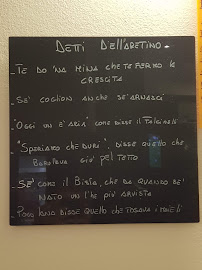 DETTI DELL'ARETINO.
-TE DO 'NA MINA CHE TE FERMO LA
CRESCITA
-SE' COGLION ANCHE SE' ARNASCI
-"OGGI UN È ARIA" COME DISSE IL FALCINELLI
-"SPERIAMO CHE DURI", DISSE QUELLO CHE
BAROLAVA GIÙ PEL TETTO
-SE' COME IL BISIA, CHE DA QUANDO SE'
NATO UN L'HE PIÙ ARVISTA
-POCA LANA DISSE QUELLO CHE TOSAVA I MAIELI